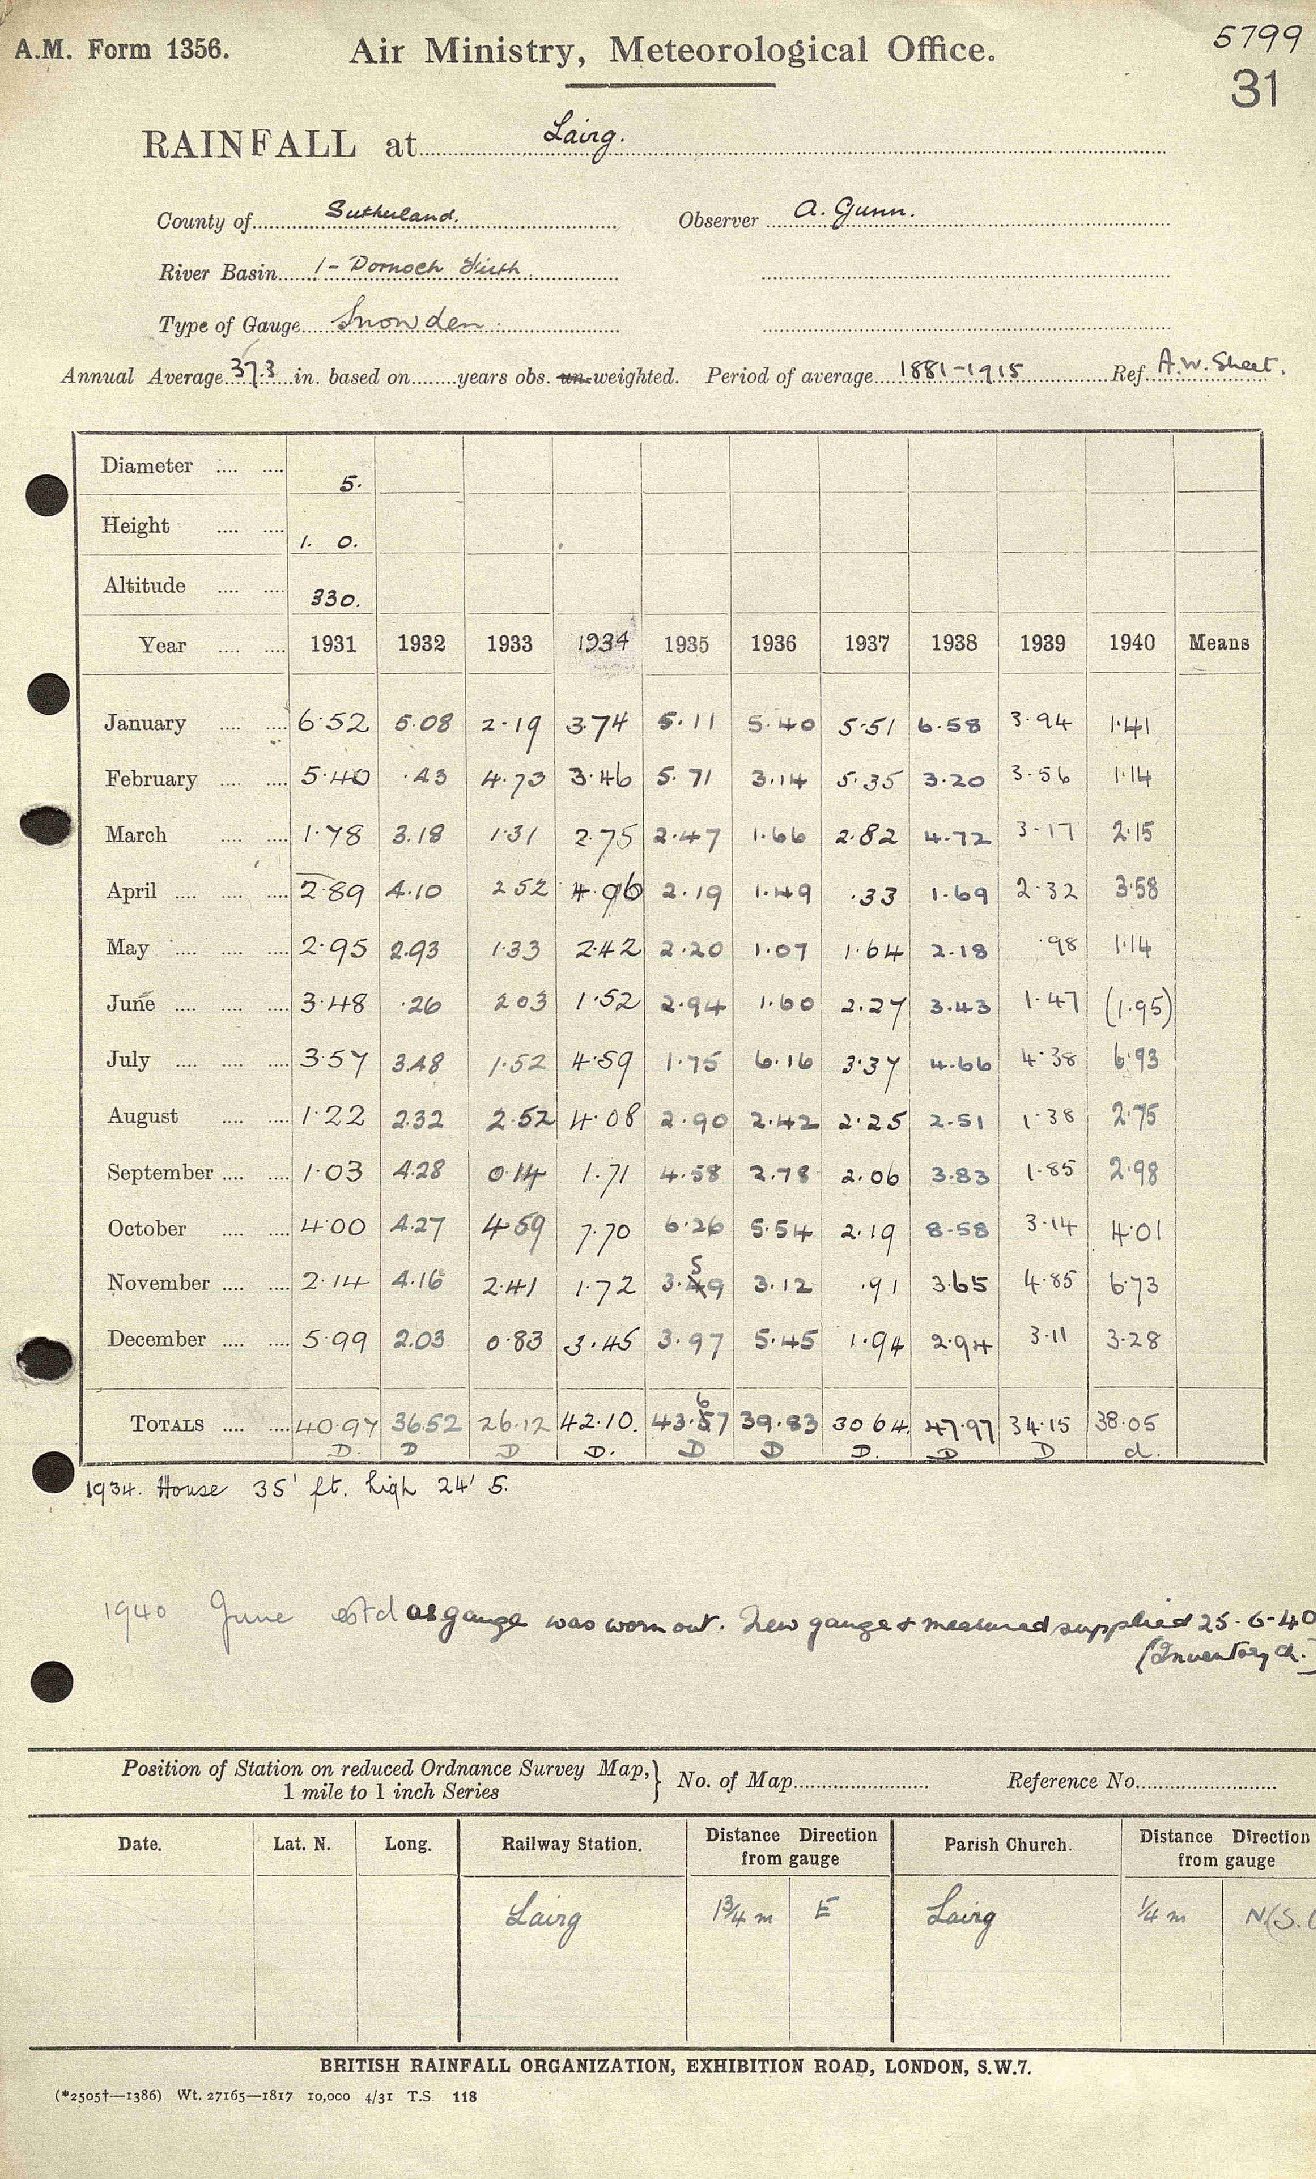 A.M. Form 1356. Air Ministry, Meteorological Office. 5799
31
RAINFALL at Lairg.
County of Sutherland. Observer A. Gunn.
River Basin 1 - Dornoch Firth
Type of Gauge Snowden
Annual Average 37.3 in. based on years obs. un-weighted. Period of average 1881-1915 Ref. A.W. Sheet.
Diameter 5.
Height 1. 0.
Altitude 330.
Year 1931 1932 1933 1934 1935 1936 1937 1938 1939 1940 Means
January 6.52 5.08 2.19 3.74 5.11 5.40 5.51 6.58 3.94 1.41
February 5.40 .43 4.73 3.46 5.71 3.14 5.35 3.20 3.56 1.14
March 1.78 3.18 1.31 2.75 2.47 1.66 2.82 4.72 3.17 2.15
April 2.89 4.10 2.52 4.96 2.19 1.49 .33 1.69 2.32 3.58
May 2.95 2.93 1.33 2.42 2.20 1.07 1.64 2.18 .98 1.14
June 3.48 .26 2.03 1.52 2.94 1.60 2.27 3.43 1.47 (1.95)
July 3.57 3.48 1.52 4.59 1.75 6.16 3.37 4.66 4.38 6.93
August 1.22 2.32 2.52 4.08 2.90 2.42 2.25 2.51 1.38 2.75
September 1.03 4.28 0.14 1.71 4.58 2.78 2.06 3.83 1.85 2.98
October 4.00 4.27 4.59 7.70 6.26 5.54 2.19 8.58 3.14 4.01
November 2.14 4.16 2.41 1.72 3.59 3.12 .91 3.65 4.85 6.73
December 5.99 2.03 0.83 3.45 3.97 5.45 1.94 2.94 3.11 3.28
TOTALS 40.97 36.52 26.12 42.10. 43.67 39.83 30.64. 47.97 34.15 38.05
D. D D D. D D D. D D d.
1934. House 35' ft. high 24' 5.
1940 June estd as gauge was worn out. New gauge & measured supplied 25-6-40
(Inventory ch.)
Position of Station on reduced Ordnance Survey Map, 1 mile to 1 inch Series } No. of Map Reference No.
Date. Lat. N. Long. Railway Station. Distance Direction from gauge Parish Church. Distance Direction from gauge
Lairg 1¾ m E Lairg ¼ m N(S.
BRITISH RAINFALL ORGANIZATION, EXHIBITION ROAD, LONDON, S.W.7.
(*2505†—1386) Wt. 27165—1817 10,000 4/31 T.S. 118